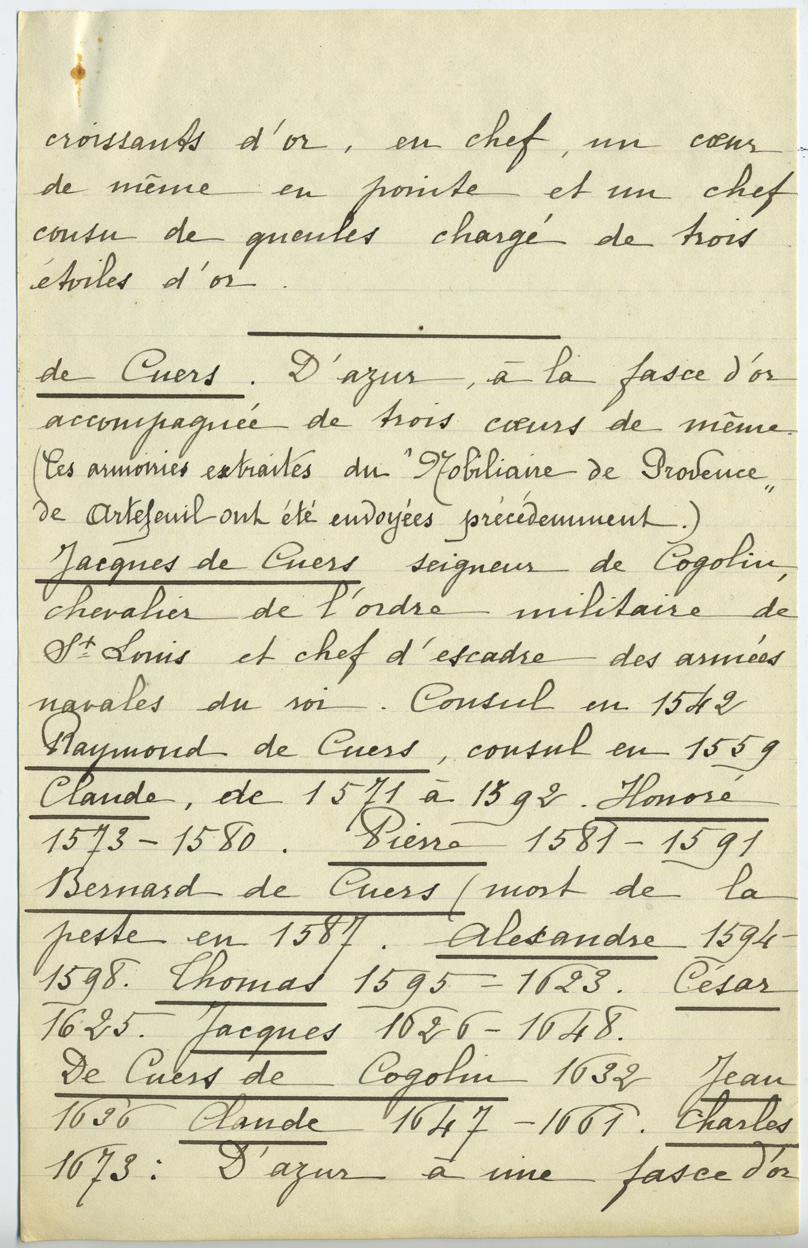 croissants d'or, en chef, un cœur
de même en pointe et un chef
cousu de gueules chargé de trois
étoiles d'or.
de Cuers. D'azur, à la fasce d'or
accompagnée de trois cœurs de même.
(Ces armoiries extraites du "Nobiliaire de Provence"
de Artefeuil ont été envoyées précédemment.)
Jacques de Cuers seigneur de Cogolin,
chevalier de l'ordre militaire de
St Louis et chef d'escadre des armées
navales du roi. Consul en 1542
Raymond de Cuers, consul en 1559
Claude, de 1571 à 1592. Honoré
1573 - 1580. Pierre 1581 - 1591
Bernard de Cuers (mort de la
peste en 1587. Alexandre 1594-
1598. Thomas 1595 - 1623. César
1625. Jacques 1626 - 1648.
De Cuers de Cogolin 1632 Jean
1636 Claude 1647 - 1661. Charles
1673: D'azur à une fasce d'or